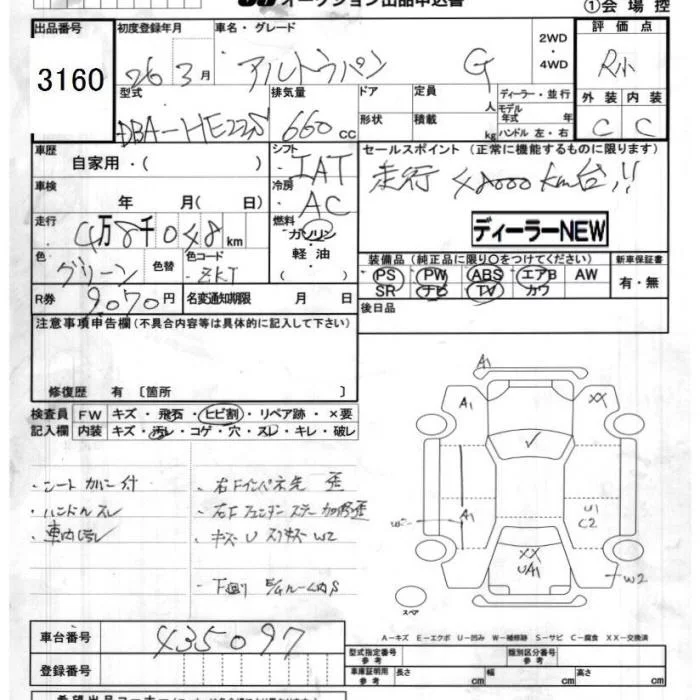 オークション出品申込書
①会場控
出品番号 初度登録年月 車名・グレード 2WD・4WD 評価点
3160 26年3月 アルトラパン G R小
型式 排気量 ドア 定員 人 ディーラー・並行 外装 内装
DBA-HE22S 660cc 形状 積載 kg モデル年式 年 ハンドル 左・右 C C
車歴 シフト セールスポイント (正常に機能するものに限ります)
自家用・( ) IAT 走行 48000km台!!
車検 冷房
年 月( 日) AC
ディーラーNEW
走行 燃料
4万8千048km ガソリン・軽油・( )
装備品 (純正品に限り○をつけてください) 新車保証書
色 色替 色コード
グリーン ZKJ
PS PW ABS エアB AW 有・無
SR ナビ TV カワ
R券 9070円 名変通知期限 月 日
後日品
注意事項申告欄(不具合内容等は具体的に記入して下さい)
修復歴 有 〔箇所 〕
検査員 FW キズ・飛石・ヒビ割・リペア跡・×要
記入欄 内装 キズ・汚レ・コゲ・穴・スレ・キレ・破レ
・シートカバー付
・ハンドルスレ
・車内汚レ
・右Fインパネ先 歪
・右Fフェンダーステー 歪
・キズ U スリキズ W2
・下廻り
A1
A1 XX
A1 U1
W C2
XX
UA1
W2
スペア
A-キズ E-エクボ U-凹み W-補修跡 S-サビ C-腐食 XX-交換済
車台番号 435097
登録番号
型式指定番号 参考 類別区分番号 参考
車庫証明用 参考 長さ cm 幅 cm 高さ cm